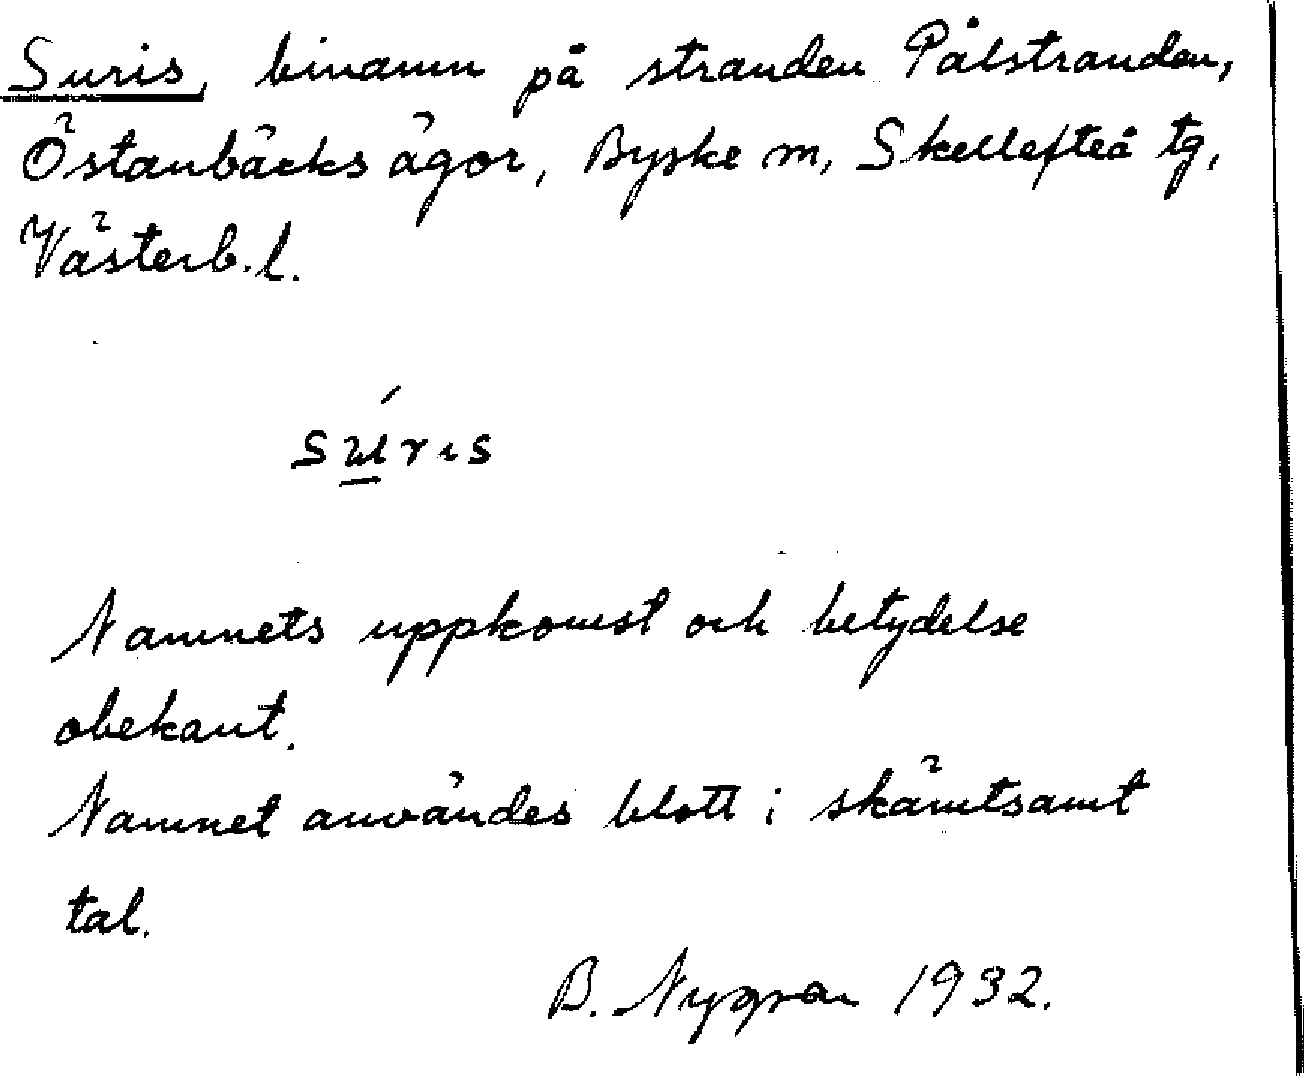 Suris, binamn på stranden Pålstranden,
Östanbäcks ägor, Byske m, Skellefteå tg,
Västerb. l.
súris
Namnets uppkomst och betydelse
obekant.
Namnet användes blott i skämtsamt
tal.
B. Nygren 1932.